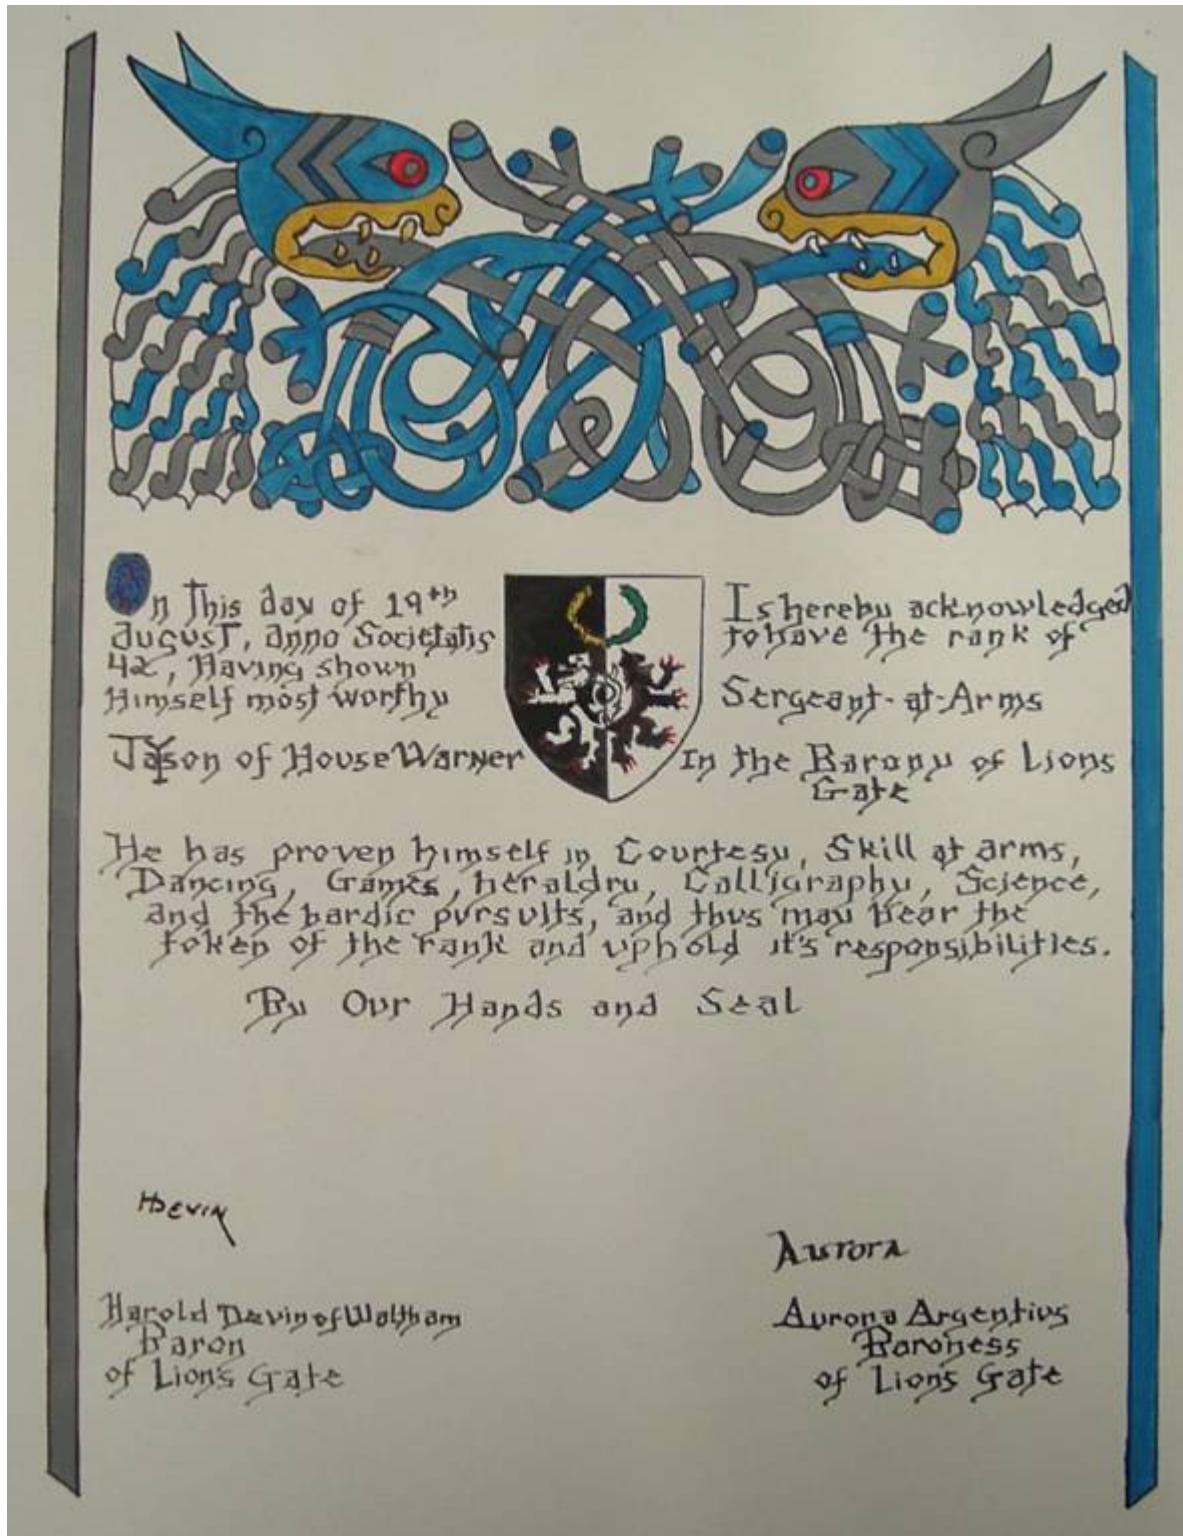 On This day of 19th
August, anno Societatis
42, Having shown
Himself most worthy
Jayson of House Warner
Is hereby acknowledged
to have the rank of
Sergeant-at-Arms
In the Barony of Lions
Gate
He has proven himself in Courtesy, Skill at arms,
Dancing, Games, heraldry, Calligraphy, Science,
and the bardic pursuits, and thus may bear the
token of the rank and uphold it's responsibilities.
By Our Hands and Seal
HDevin
Aurora
Harold Devin of Waltham
Baron
of Lion's Gate
Aurora Argentius
Baroness
of Lion's Gate